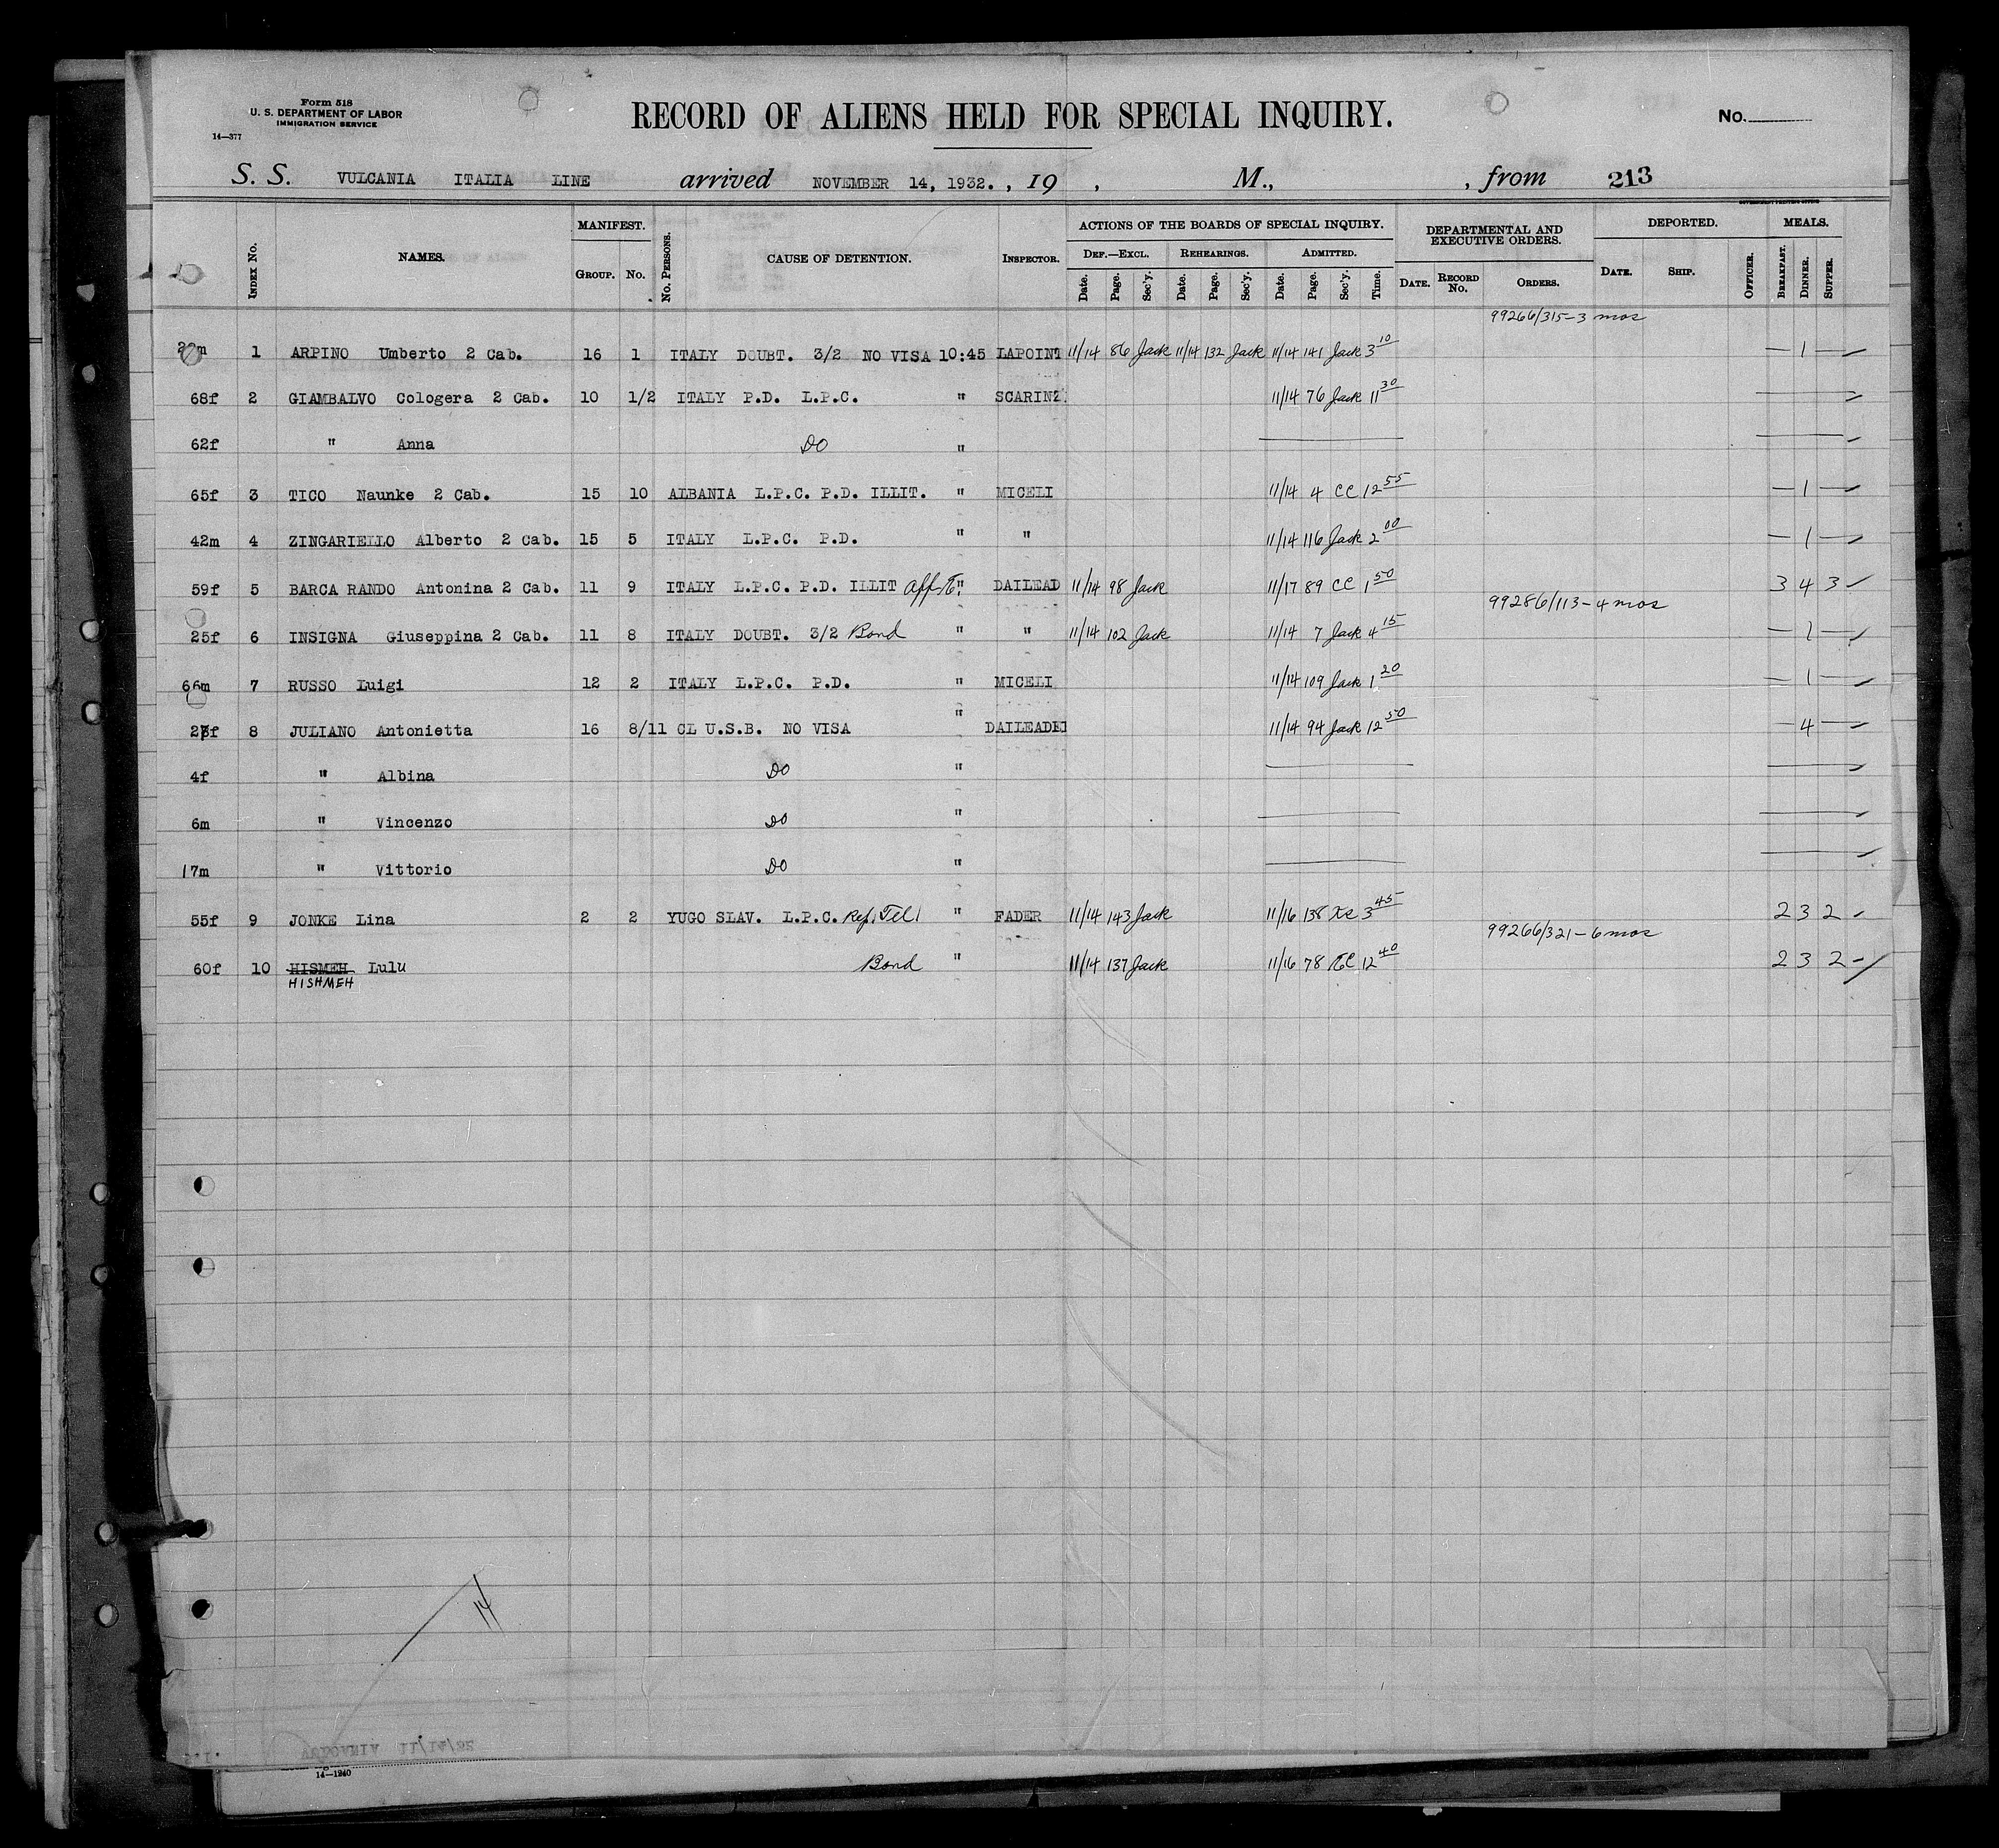 Form 518
U. S. DEPARTMENT OF LABOR
IMMIGRATION SERVICE
14—377
RECORD OF ALIENS HELD FOR SPECIAL INQUIRY.
No.
S. S. VULCANIA ITALIA LINE arrived NOVEMBER 14, 1932. , 19 , M., , from 213
INDEX No. NAMES. MANIFEST. GROUP. No. No. PERSONS. CAUSE OF DETENTION. INSPECTOR. ACTIONS OF THE BOARDS OF SPECIAL INQUIRY. DEF.—EXCL. Date. Page. Sec'y. REHEARINGS. Date. Page. Sec'y. ADMITTED. Date. Page. Sec'y. Time. DEPARTMENTAL AND EXECUTIVE ORDERS. DATE. RECORD No. ORDERS. DEPORTED. DATE. SHIP. OFFICER. MEALS. BREAKFAST. DINNER. SUPPER.
99266/315-3 mos
1 ARPINO Umberto 2 Cab. 16 1 ITALY DOUBT. 3/2 NO VISA 10:45 LAPOINT 11/14 86 Jack 11/14 132 Jack 11/14 141 Jack 3 10 — 1 —
68f 2 GIAMBALVO Cologera 2 Cab. 10 1/2 ITALY P.D. L.P.C. " SCARINZ 11/14 76 Jack 11 30
62f " Anna DO "
65f 3 TICO Naunke 2 Cab. 15 10 ALBANIA L.P.C. P.D. ILLIT. " MICELI 11/14 4 CC 12 55 — 1 —
42m 4 ZINGARIELLO Alberto 2 Cab. 15 5 ITALY L.P.C. P.D. " " 11/14 116 Jack 2 00 — 1 —
59f 5 BARCA RANDO Antonina 2 Cab. 11 9 ITALY L.P.C. P.D. ILLIT " DAILEAD 11/14 98 Jack 11/17 89 CC 1 50 3 4 3
99286/113-4 mos
25f 6 INSIGNA Giuseppina 2 Cab. 11 8 ITALY DOUBT. 3/2 Bond " " 11/14 102 Jack 11/14 7 Jack 4 15 — 1 —
66m 7 RUSSO Luigi 12 2 ITALY L.P.C. P.D. " MICELI 11/14 109 Jack 1 20 — 1 —
8 JULIANO Antonietta 16 8/11 CL U.S.B. NO VISA " DAILEADE 11/14 94 Jack 12 50 — 4 —
4f " Albina DO "
6m " Vincenzo DO "
17m " Vittorio DO "
55f 9 JONKE Lina 2 2 YUGO SLAV. L.P.C. Ref. Tel. " FADER 11/14 143 Jack 11/16 138 3 45 2 3 2
99266/321-6 mos
60f 10 HISMEH Lulu Bond " 11/14 137 Jack 11/16 78 12 40 2 3 2
HISHMEH
14
14—1240